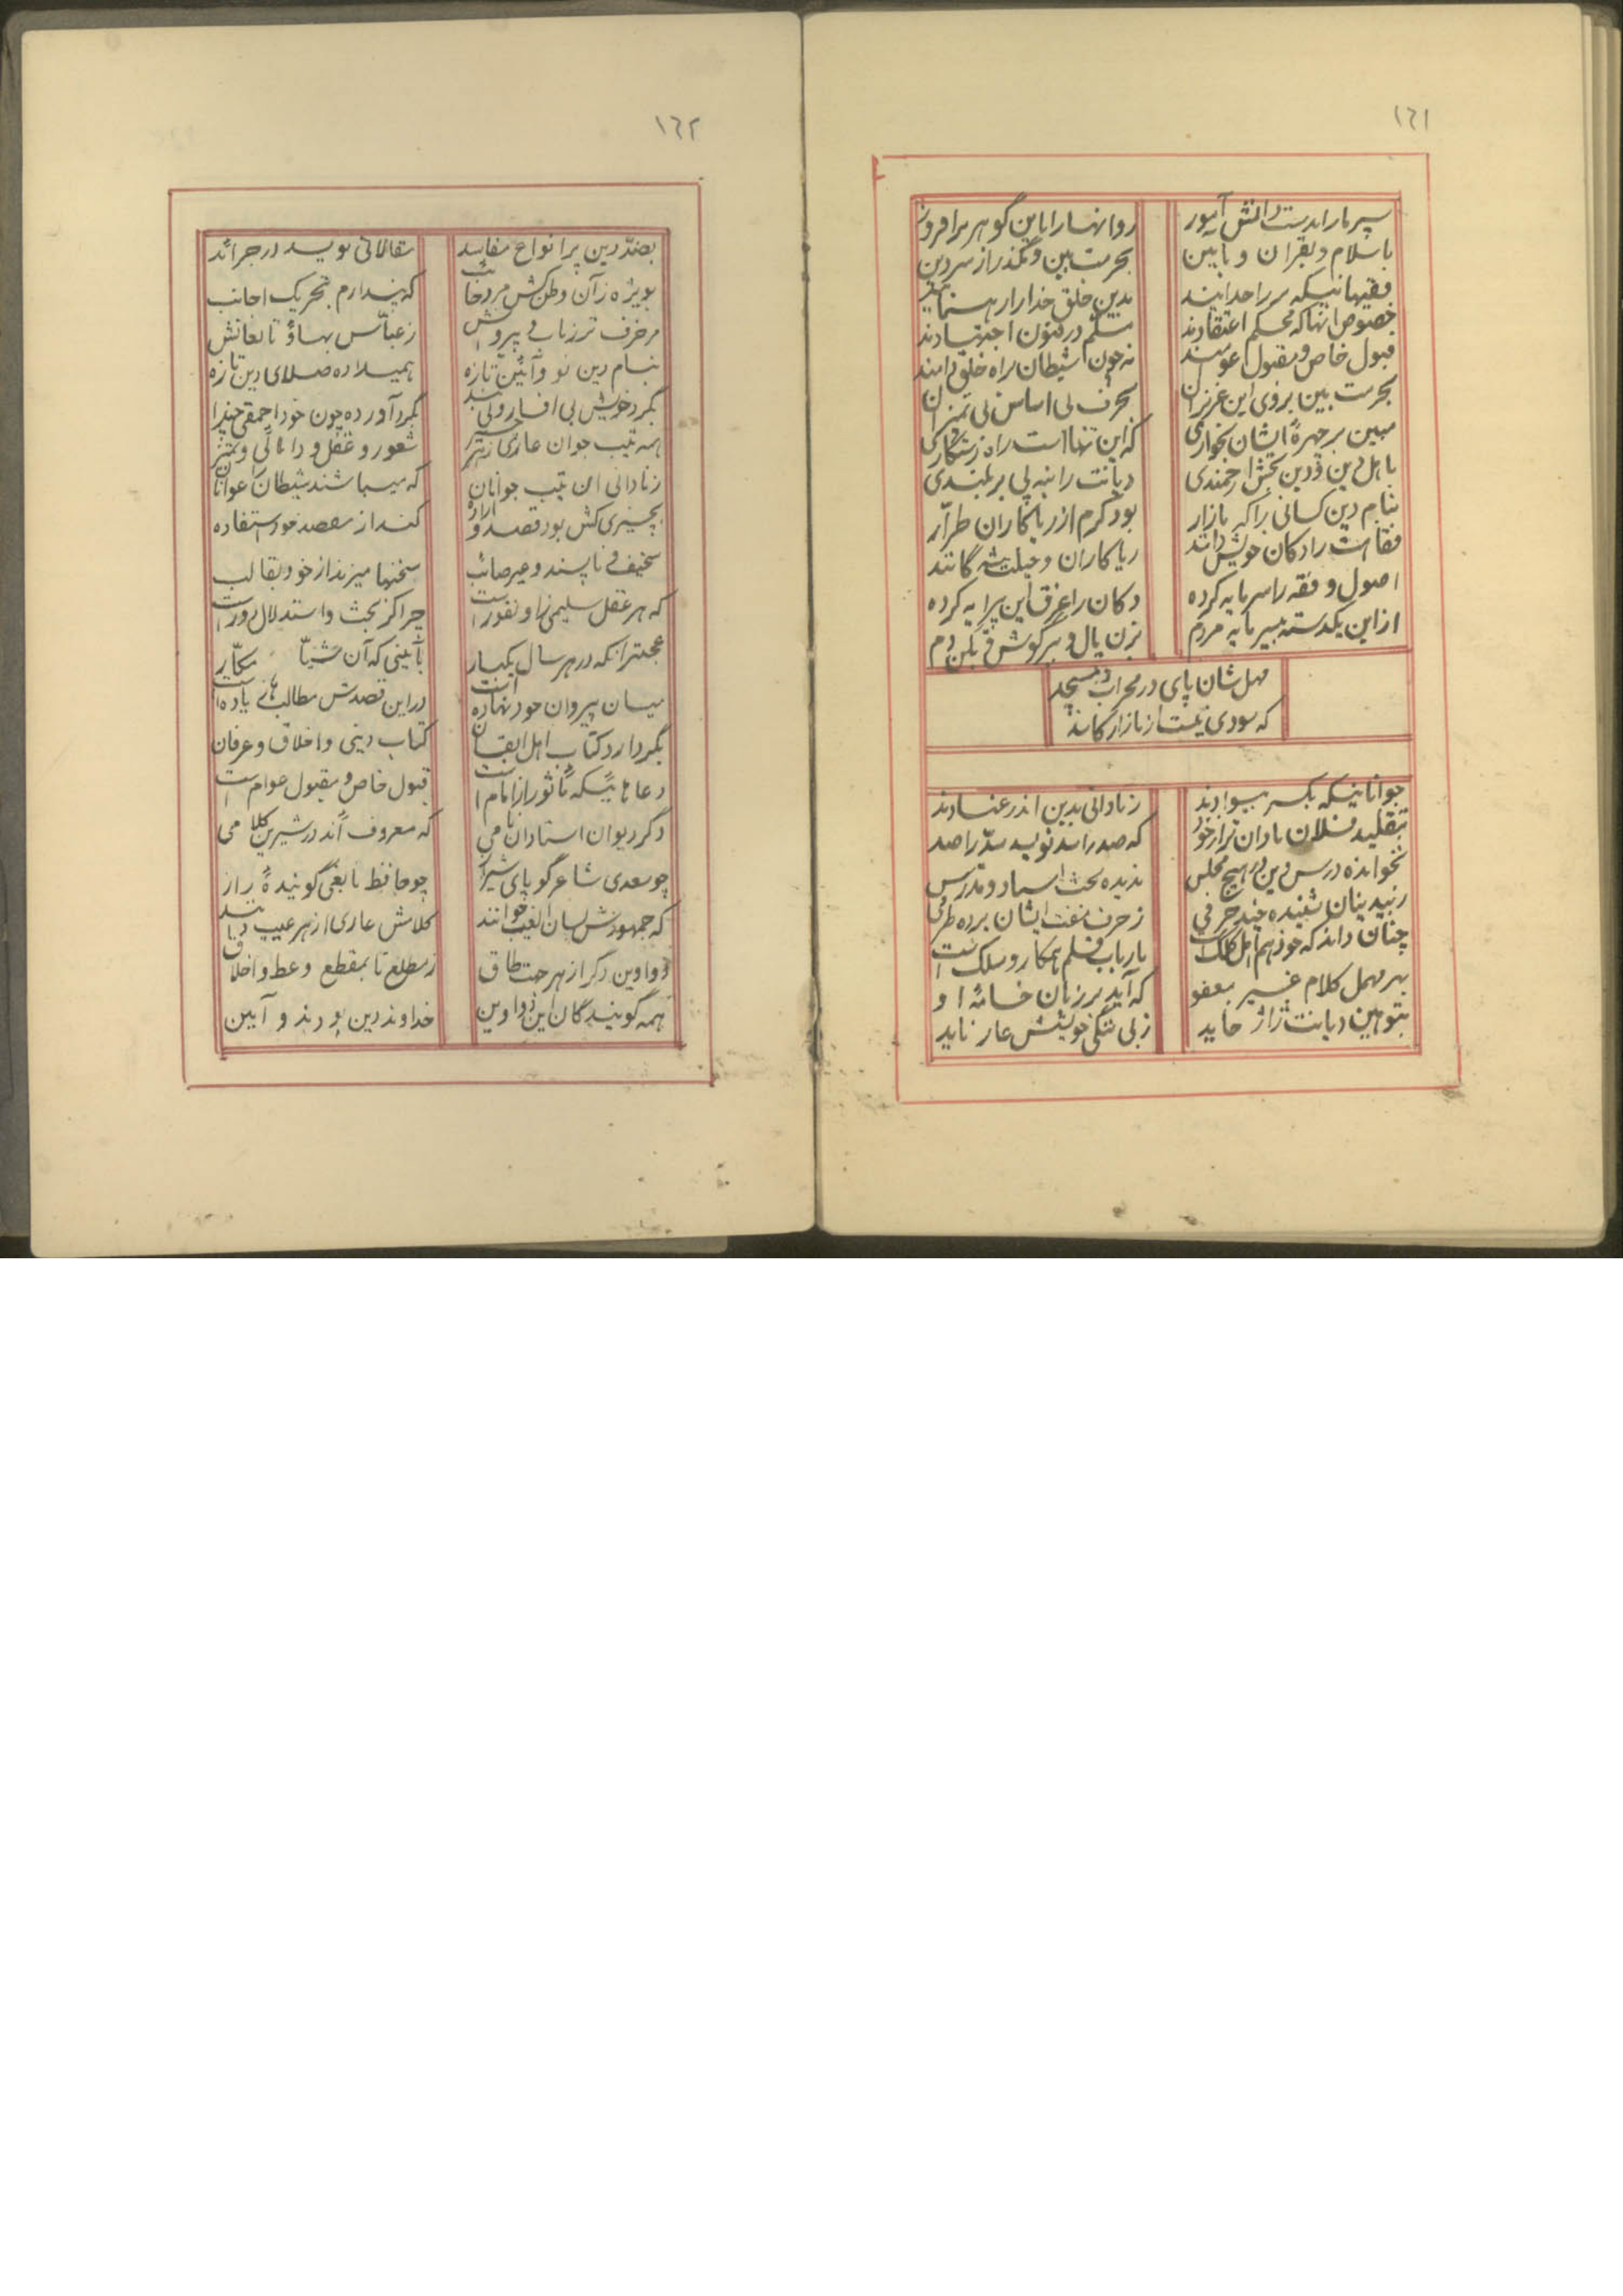 ١٦١
سپر ما را بدست دانش آموز
روانها را باین گوهر برافروز
باسلام و بقران و بآیین
بحرمت بین و مگذر از سر دین
فقیهانیکه سر راه خدایند
بدین خلق خدا را رهنمایند
خصوص آنها که محکم اعتقادند
مسلم در فنون اجتهادند
قبول خاص و مقبول عوامند
نه چون شیطان براه خلق دامند
بحرمت بین بروی این عزیزان
بحرف بی اساس بی تمیزان
مبین بر چهرهٔ ایشان بخواری
که این تنها است راه رستگاری
باهل دین و دین بخش ارجمندی
دیانت را بنه پی بر بلندی
بنام دین کسانی را که بازار
بود گرم از ریاکاران طرّار
فقاهت را دکان خویش دانند
ریاکاران و حیلت پیشه گانند
اصول و فقه را سرمایه کرده
دکان را غرق این پیرایه کرده
از این یکدسته بیسرمایه مردم
بزن یال و ببر گوش و بکن دم
مهل شان پای در محراب و مسجد
که سودی نیست از بازار کاسد
جوانانیکه یکسر بیسوادند
ز نادانی بدین اندر عنادند
بتقلید فلان نادان تر از خود
که صد را سد نویسد سدّ را صد
نخوانده درس دین در هیچ مجلس
ندیده بحث استاد و مدرس
ز بیدینان شنیده چند حرفی
ز حرف مفت ایشان برده طرفی
چنان داند که خود هم اهل کلک است
بارباب قلم همکار و سلک است
بهر مهمل کلام غیر معفو
که آید بر زبان خامهٔ او
بتوهین دیانت ژاژ خاید
ز بی ننگی خویشش عار ناید
١٦٢
بضدّ دین پر انواع مفاسد
مقالاتی نویسد در جرائد
بویژه زآن وطن کش مرد خائب
که پندارم بتحریک اجانب
مزخرف ترزبانی پیروانش
ز عباس بهاؤ تابعانش
بنام دین نو و آئین تازه
همیلا ده صلای دین تازه
بگرد خویش بی افسار و بی بند
بگرد آورده چون خود احمقی چند
همه تیپ جوان عاری ز هر چیز
شعور و عقل و دانائی و تمییز
ز نادانی این تیپ جوانان
که میباشند شیطان را عوانان
بچیزی کش بود قصد و اراده
کند از مقصد خود استفاده
سخیف و ناپسند و غیر صائب
سخنها میزند از خود بقالب
که هر عقل سلیمی زا و نفور است
چرا کز بحث و استدلال دور است
عجبتر آنکه در هر سال یکبار
بآئینی که آن شیّاد مکّار
میان پیروان خود نهاده است
در این قصدش مطالبهای یاده است
بگرد آرد کتاب اهل ایقان
کتاب دینی و اخلاق و عرفان
دعاهائیکه مأثور از امام است
قبول خاص و مقبول عوام است
دگر دیوان استادان نامی
که معروف اند در شیرین کلامی
چو سعدی شاعر گویای شیراز
چو حافظ نابغی گویندهٔ راز
که جمهورش لسان الغیب خوانند
کلامش عاری از هر عیب دانند
دواوین دگر از هر جهت طاق
ز مطلع تا بمقطع وعظ و اخلاق
همه گویندگان این دواوین
خداوند دین بودند و آیین